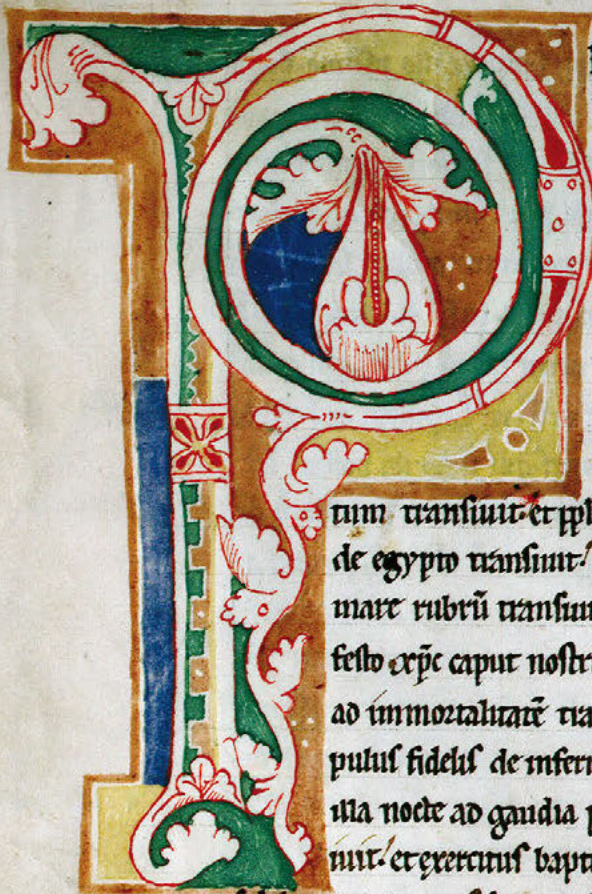 P
tum transiuit. et ppl
de egypto transiuit.
mare rubrū transiui
festo xp̄c caput nostr
ad immortalitatē tra
pulus fidelis de infer
illa nocte ad gaudia p
iuit. et exercitus bapti